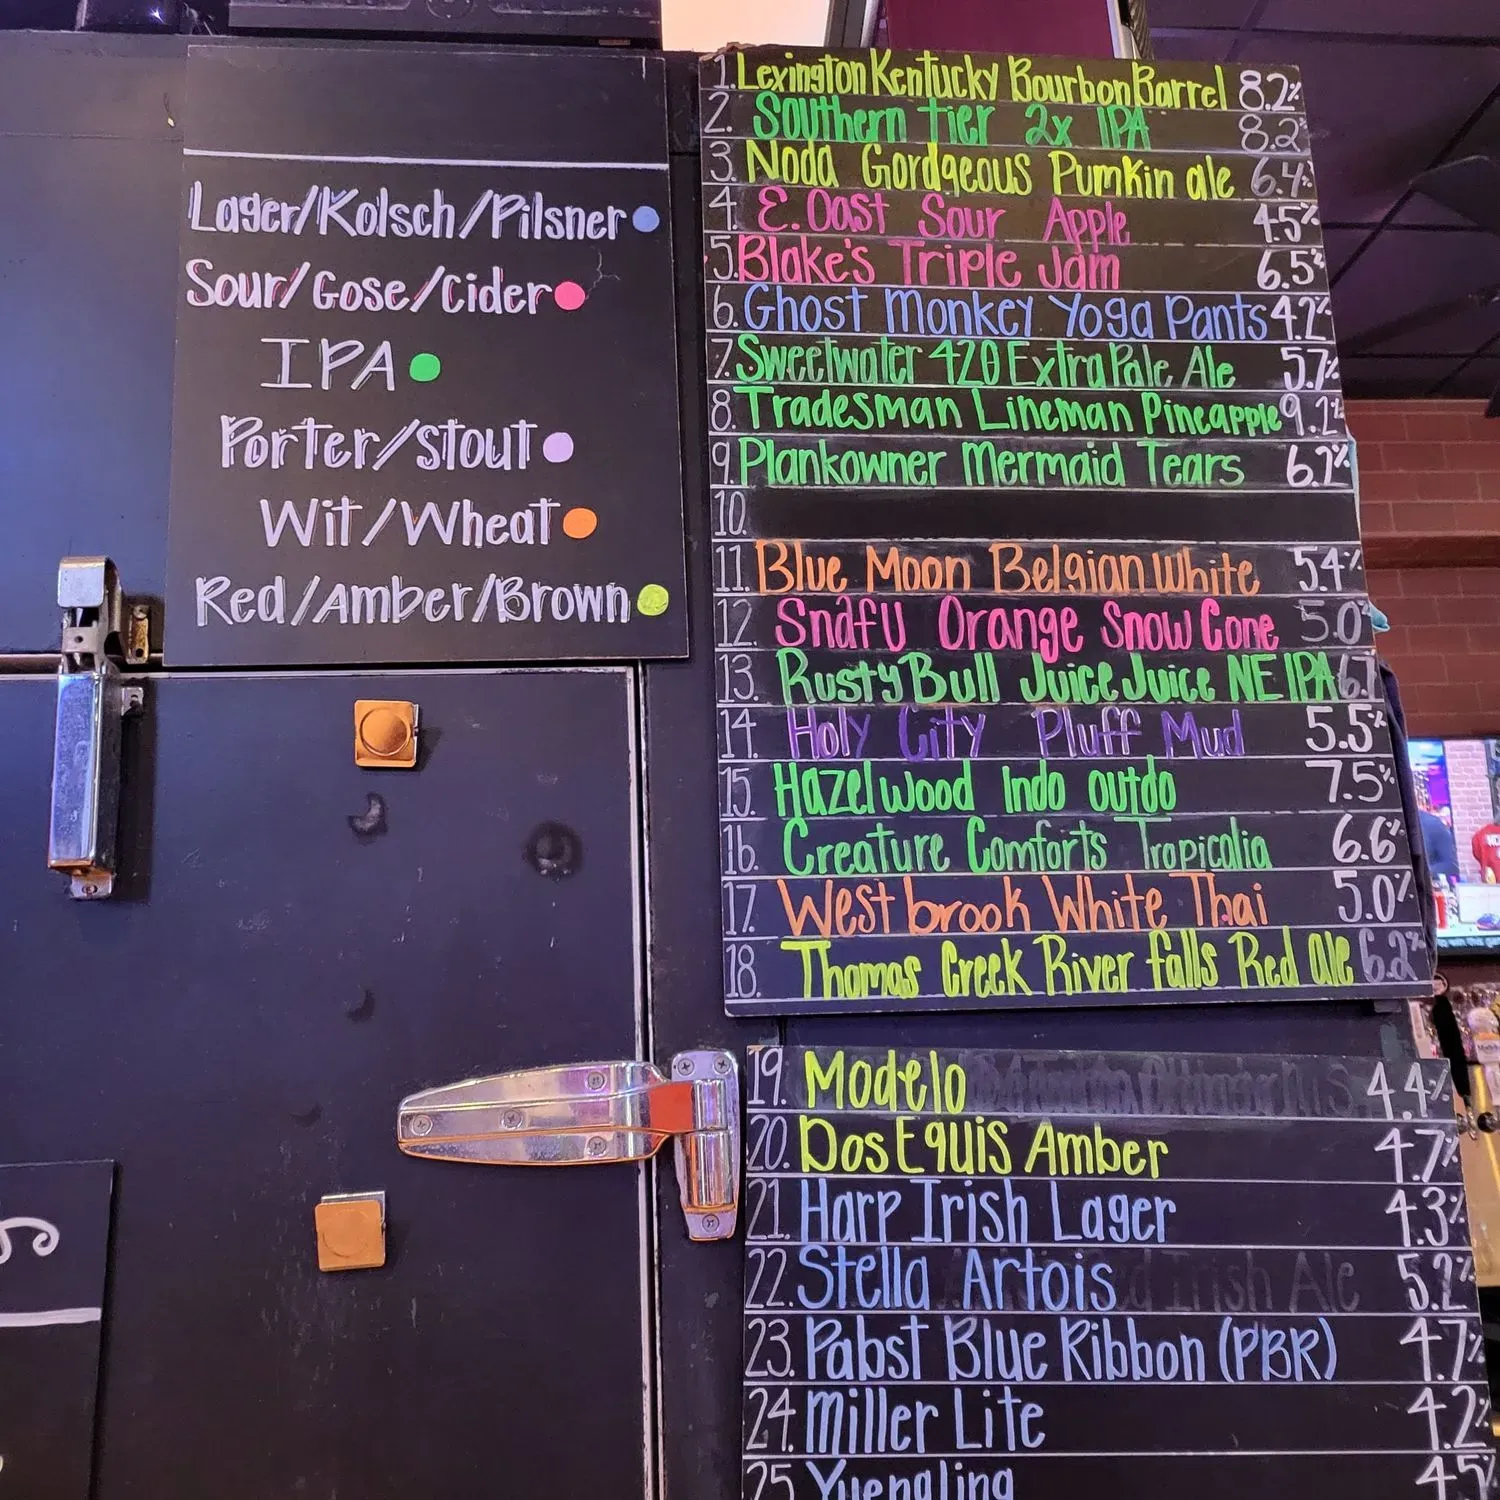 Lager/Kolsch/Pilsner
Sour/Gose/Cider
IPA
Porter/Stout
Wit/Wheat
Red/Amber/Brown
1. Lexington Kentucky Bourbon Barrel 8.2%
2. Southern Tier 2x IPA 8.2%
3. Noda Gordgeous Pumkin ale 6.4%
4. E. Coast Sour Apple 4.5%
5. Blake's Triple Jam 6.5%
6. Ghost Monkey Yoga Pants 4.2%
7. Sweetwater 420 Extra Pale Ale 5.7%
8. Tradesman Lineman Pineapple 9.1%
9. Plankowner Mermaid Tears 6.2%
10.
11. Blue Moon Belgian White 5.4%
12. Snafu Orange Snow Cone 5.0%
13. Rusty Bull Juice Juice NE IPA 6.7
14. Holy City Pluff Mud 5.5%
15. Hazelwood Indo outdo 7.5%
16. Creature Comforts Tropicalia 6.6%
17. Westbrook White Thai 5.0%
18. Thomas Creek River falls Red ale 6.2%
19. Modelo 4.4%
20. Dos Equis Amber 4.7%
21. Harp Irish Lager 4.3%
22. Stella Artois 5.2%
23. Pabst Blue Ribbon (PBR) 4.7%
24. Miller Lite 4.2%
25. Yuengling 4.5%